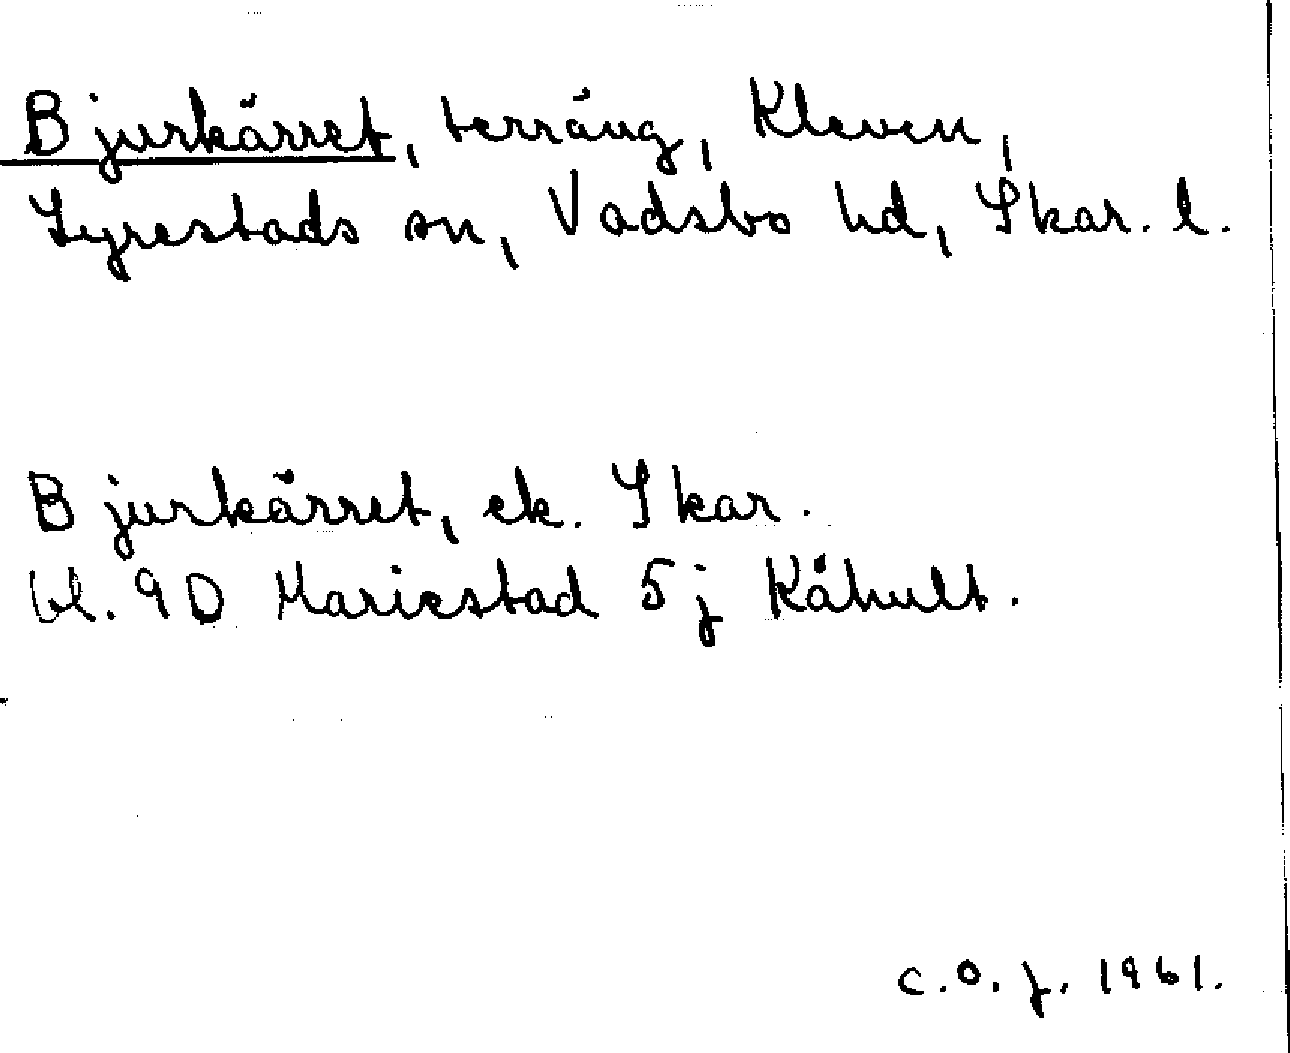 Bjurkärret, terräng, Kleven,
Lyrestads sn, Vadsbo hd, Skar. l.
Bjurkärret, ek. Skar.
bl. 9D Mariestad 5j Kåhult.
c.o.j. 1961.